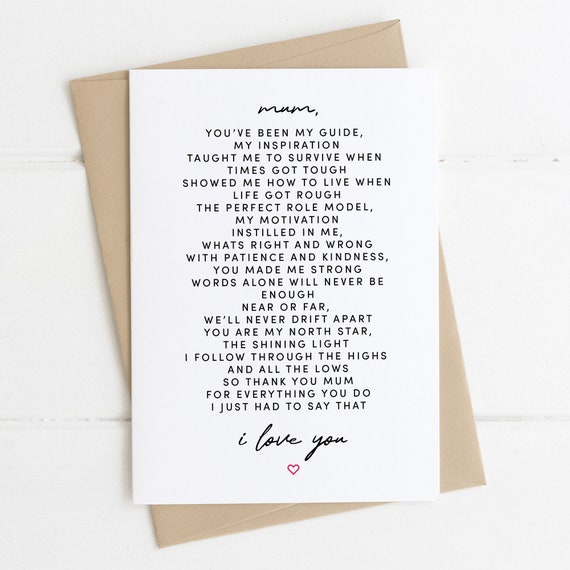 mum,
YOU'VE BEEN MY GUIDE,
MY INSPIRATION
TAUGHT ME TO SURVIVE WHEN
TIMES GOT TOUGH
SHOWED ME HOW TO LIVE WHEN
LIFE GOT ROUGH
THE PERFECT ROLE MODEL,
MY MOTIVATION
INSTILLED IN ME,
WHATS RIGHT AND WRONG
WITH PATIENCE AND KINDNESS,
YOU MADE ME STRONG
WORDS ALONE WILL NEVER BE
ENOUGH
NEAR OR FAR,
WE'LL NEVER DRIFT APART
YOU ARE MY NORTH STAR,
THE SHINING LIGHT
I FOLLOW THROUGH THE HIGHS
AND ALL THE LOWS
SO THANK YOU MUM
FOR EVERYTHING YOU DO
I JUST HAD TO SAY THAT
i love you